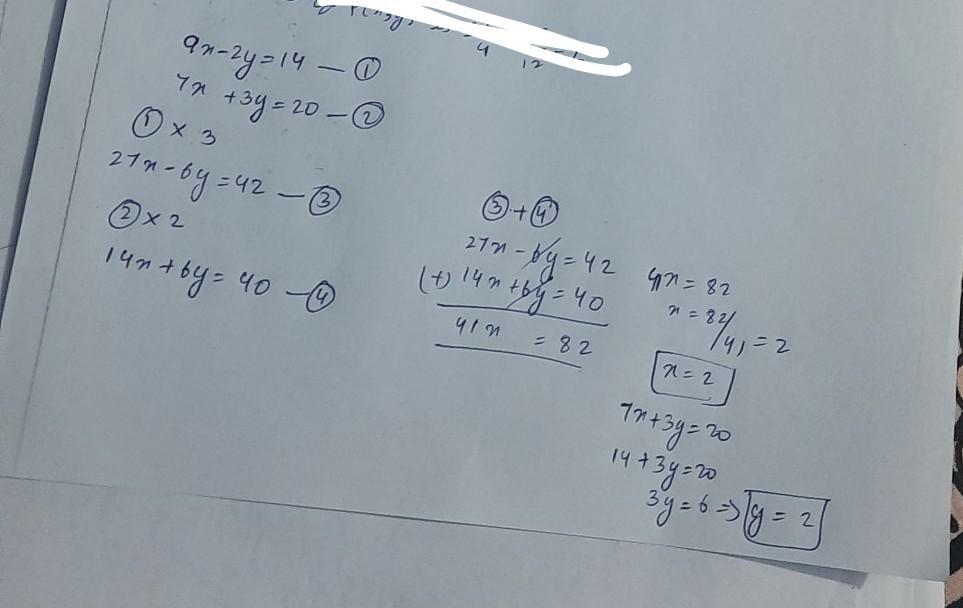 9x-2y=14 — ①
7x +3y=20 — ②
① × 3
27x-6y=42 — ③
② × 2
14x+6y=40 — ④
③+④
27x-6y=42
(+) 14x+6y=40
41x = 82
41x = 82
x = 82/41 = 2
x=2
7x+3y=20
14+3y=20
3y=6 => y=2